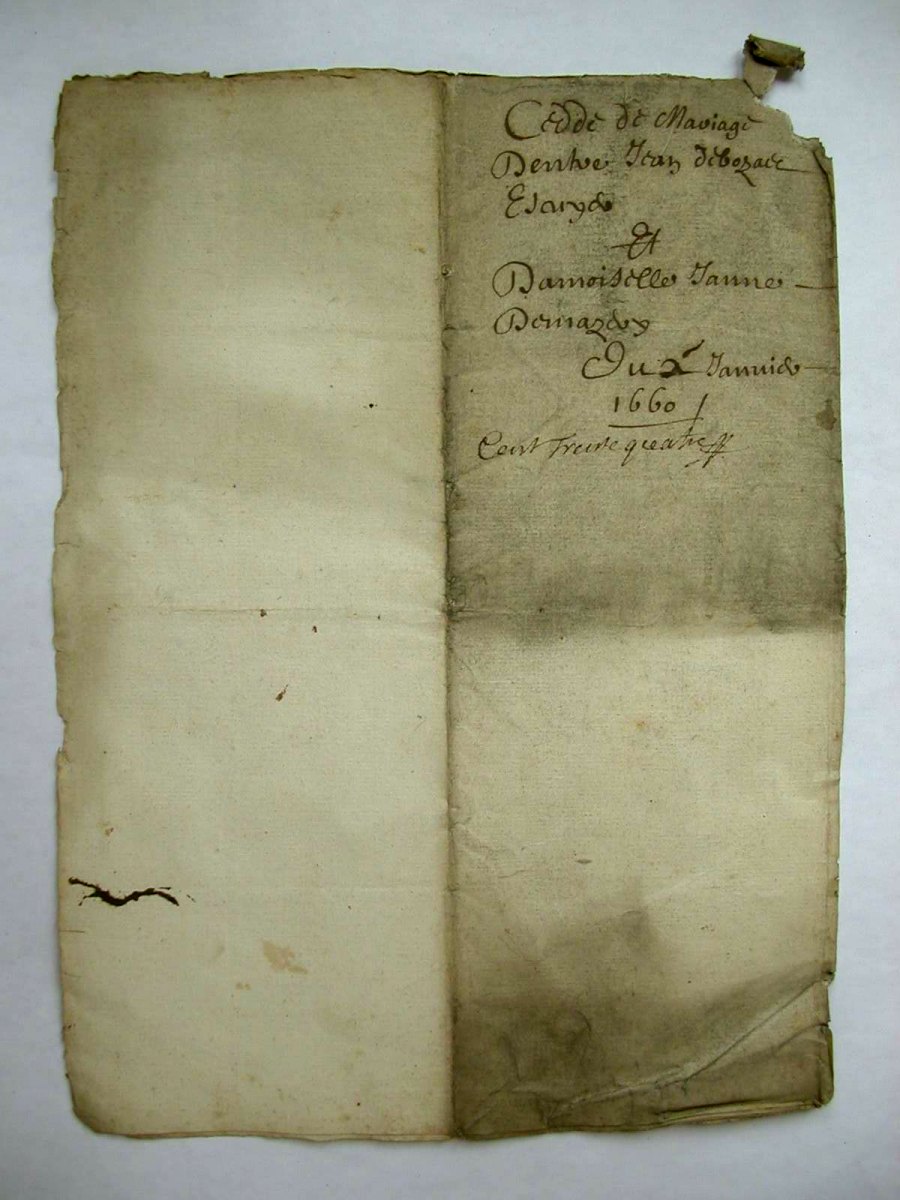 Cedde de Mariage
Dentre Jean debozace
Escuyer
Et
Damoiselle Janne
Demazeux
Du x Janvier
1660
Cent Trente quatre